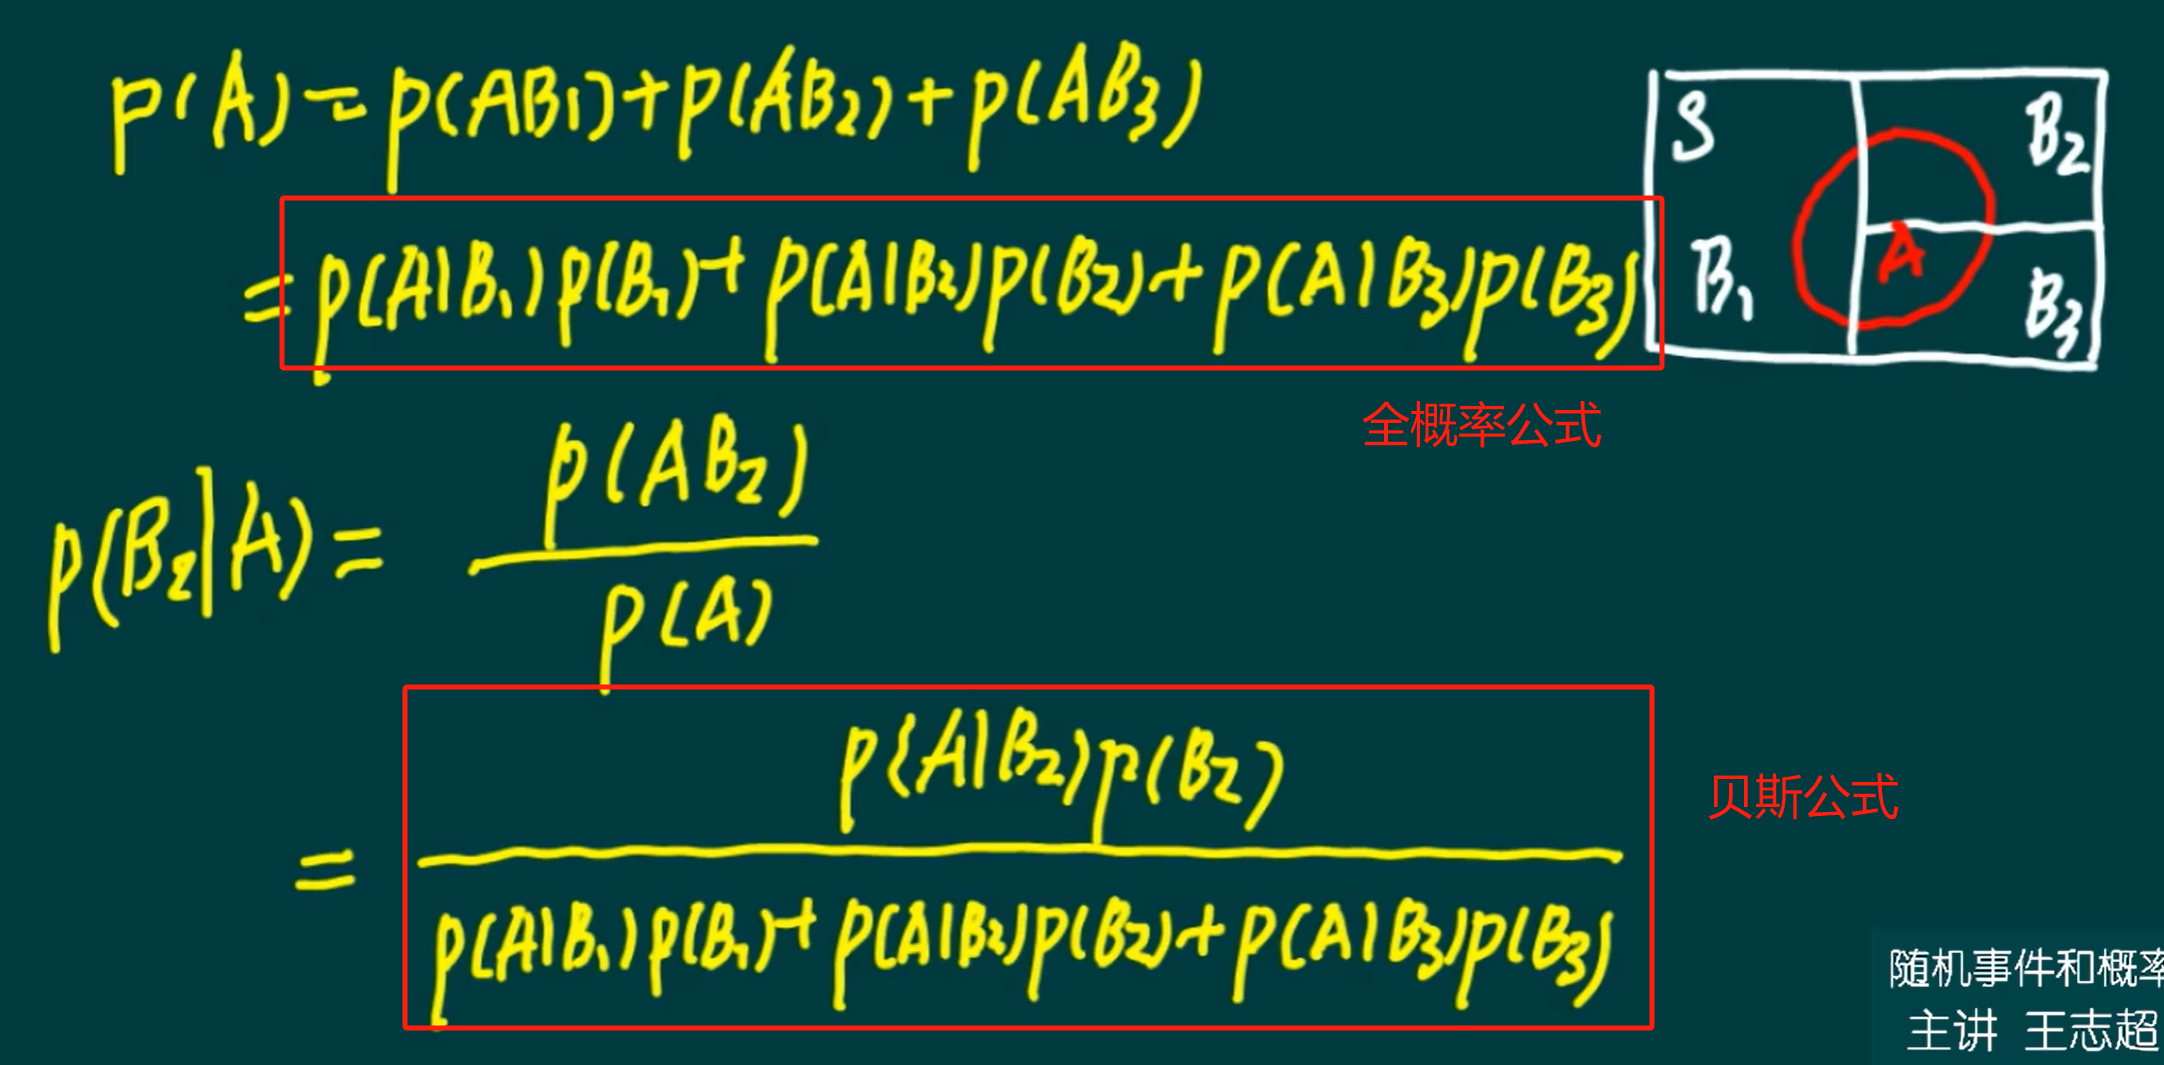 p(A)=p(AB₁)+p(AB₂)+p(AB₃)
=p(A|B₁)p(B₁)+p(A|B₂)p(B₂)+p(A|B₃)p(B₃)
全概率公式
S
B₂
B₁
A
B₃
p(B₂|A)=p(AB₂)/p(A)
=p(A|B₂)p(B₂)/p(A|B₁)p(B₁)+p(A|B₂)p(B₂)+p(A|B₃)p(B₃)
贝斯公式
随机事件和概率
主讲 王志超